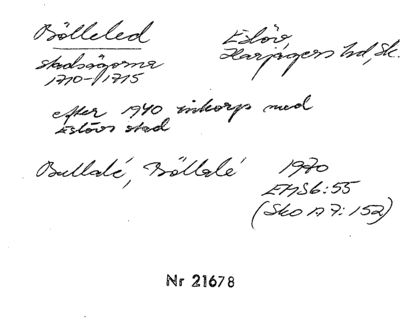 Bölleled
Eslöv,
Harjagers hd, Sk.
stadsägorna
1710-1715
efter 1940 inkorp med
Eslövs stad
Bullalé, Böllalé
1970
EHS6:55
(Sko A 7:152)
Nr 21678